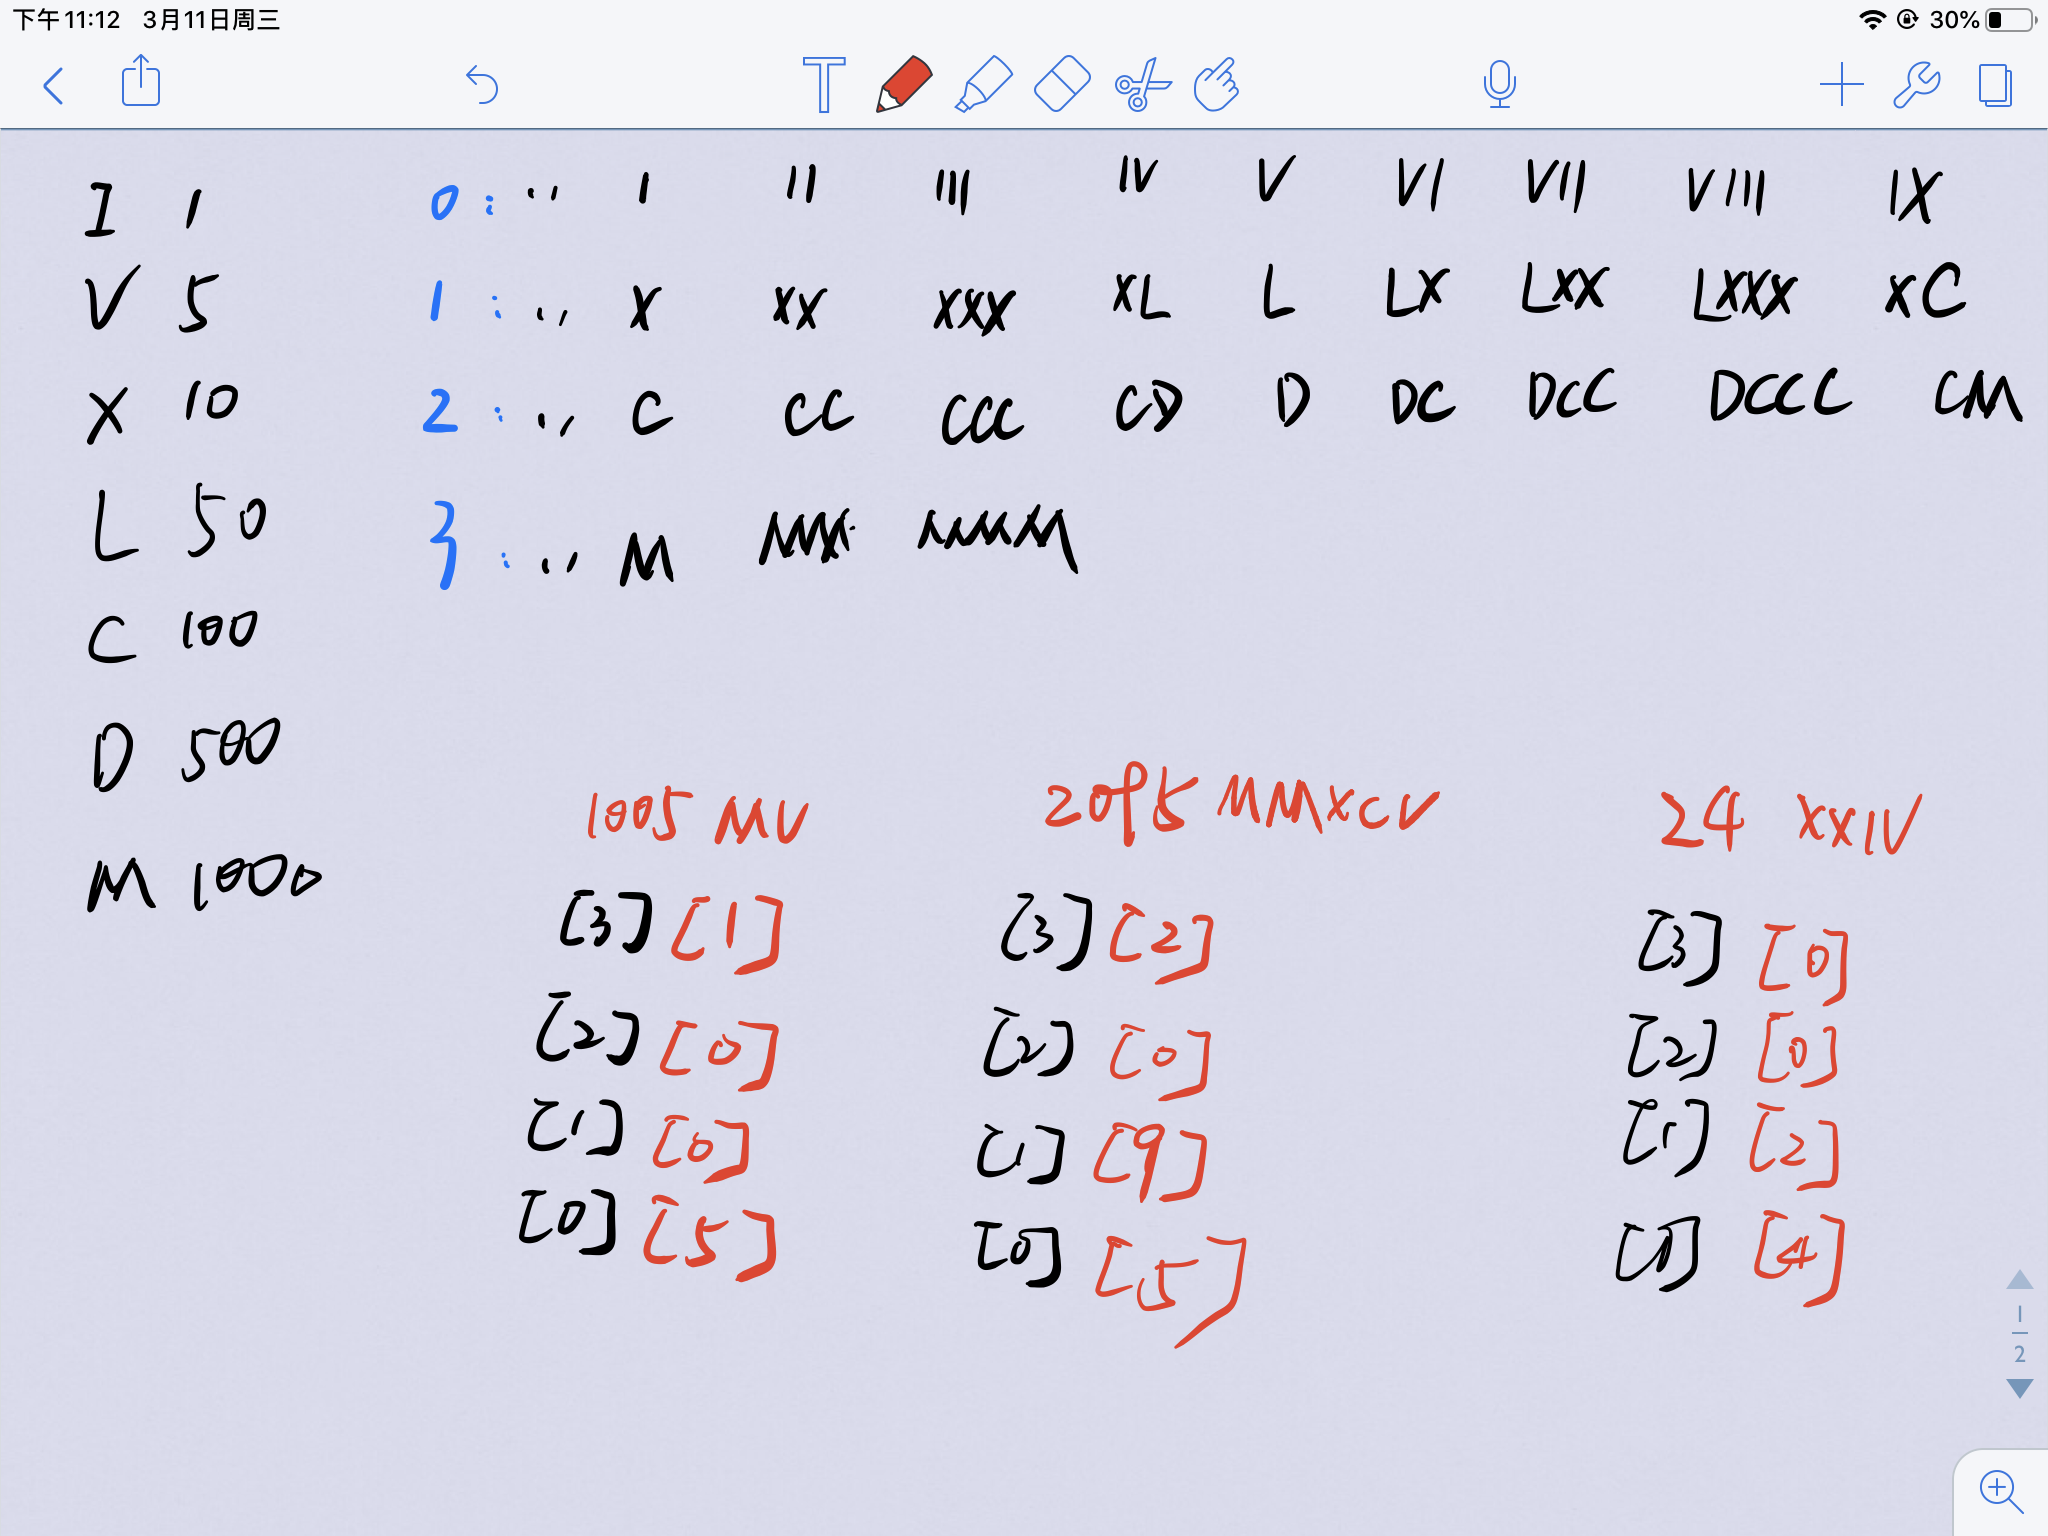 下午11:12 3月11日周三
30%
T
I 1
V 5
X 10
L 50
C 100
D 500
M 1000
0: '' I II III IV V VI VII VIII IX
1: '' X XX XXX XL L LX LXX LXXX XC
2: '' C CC CCC CD D DC DCC DCCC CM
3: '' M MM MMM
1005 MV
[3] [1]
[2] [0]
[1] [0]
[0] [5]
2095 MMXCV
[3] [2]
[2] [0]
[1] [9]
[0] [5]
24 XXIV
[3] [0]
[2] [0]
[1] [2]
[4]
1
2